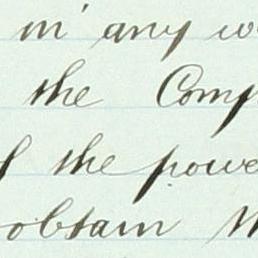 in any
the Comp
the powe
obtain th